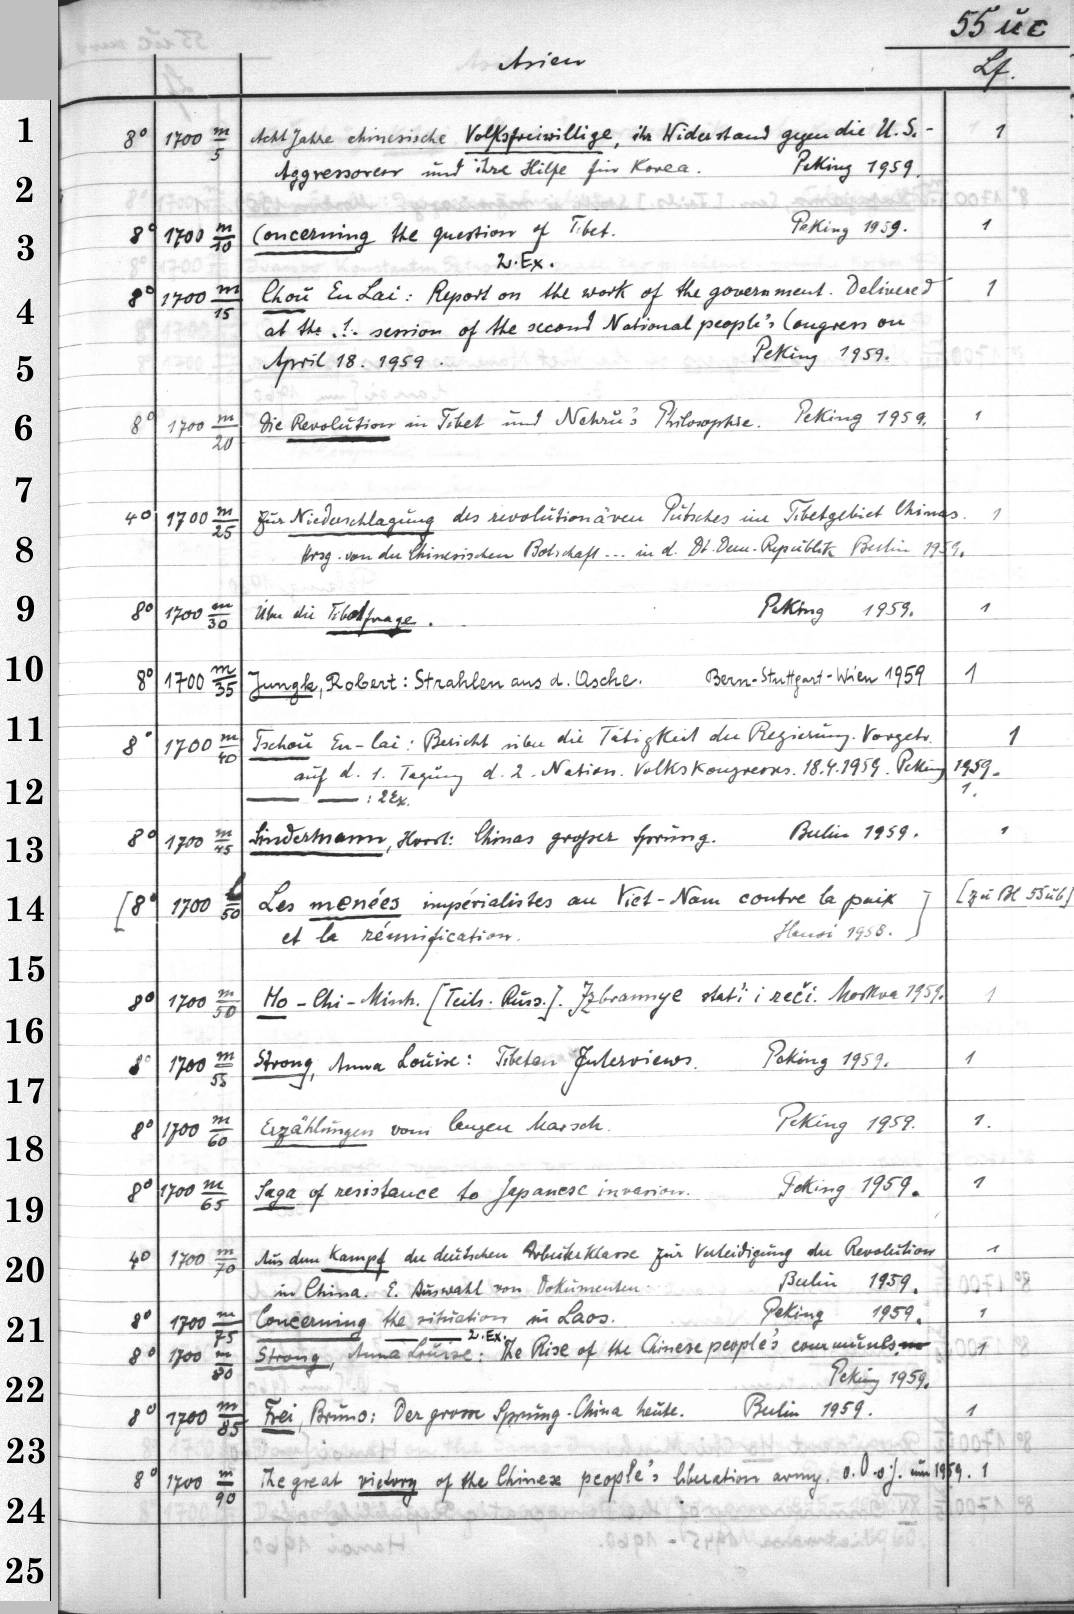 55 üc
Asien
Lf.
1
8° 1700 m/5 Acht Jahre chinesische Volksfreiwillige, ihr Widerstand gegen die U.S.- 1
Aggressoren und ihre Hilfe für Korea. Peking 1959.
2
3
8° 1700 m/10 Concerning the question of Tibet. Peking 1959. 1
2. Ex.
4
8° 1700 m/15 Choū En Lai: Report on the work of the government. Delivered 1
at the .1. session of the second National people's Congress on
5
April 18. 1959. Peking 1959.
6
8° 1700 m/20 Die Revolution in Tibet und Nehrū's Philosophie. Peking 1959. 1
7
4° 1700 m/25 Zur Niederschlagung des revolutionären Putsches im Tibetgebiet Chinas. 1
8
Hrsg. von der Chinesischen Botschaft ... in d. Dt. Dem. Republik Berlin 1959.
9
8° 1700 m/30 Über die Tibetfrage. Peking 1959. 1
10
8° 1700 m/35 Jungk, Robert: Strahlen aus d. Asche. Bern-Stuttgart-Wien 1959 1
11
8° 1700 m/40 Tschou En-lai: Bericht über die Tätigkeit der Regierung. Vorgetr. 1
auf d. 1. Tagung d. 2. Nation. Volkskongresses. 18.4.1959. Peking 1959.
12
— — : 2 Ex. 1.
13
8° 1700 m/45 Lindermann, Horst: Chinas großer Sprung. Berlin 1959. 1
14
[8° 1700 l/50 Les menées impérialistes au Viet-Nam contre la paix ] [zu Bl 55üb]
et la réunification. Hanoi 1958.
15
8° 1700 m/50 Ho-Chi-Minh. [Teils. Russ.]. Izbrannye stat'i i reči. Moskva 1959. 1
16
8° 1700 m/55 Strong, Anna Louise: Tibetan Interviews. Peking 1959. 1
17
8° 1700 m/60 Erzählungen vom langen Marsch. Peking 1959. 1.
18
8° 1700 m/65 Saga of resistance to Japanese invasion. Peking 1959. 1
19
4° 1700 m/70 Aus dem Kampf der deutschen Arbeiterklasse zur Verteidigung der Revolution 1
20
in China. E. Auswahl von Dokumenten. Berlin 1959.
21
8° 1700 m/75 Concerning the situation in Laos. Peking 1959. 1
— — 2. Ex.
8° 1700 m/80 Strong, Anna Louise: The Rise of the Chinese people's communes 1
22
Peking 1959.
8° 1700 m/85 Frei, Bruno: Der grosse Sprung. China heute. Berlin 1959. 1
23
8° 1700 m/90 The great victory of the Chinese people's liberation army. o. O. o. J. um 1959. 1
24
25